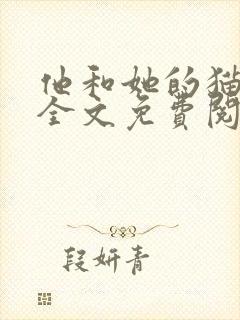 他和她的猫
全文免費閱
段妍青